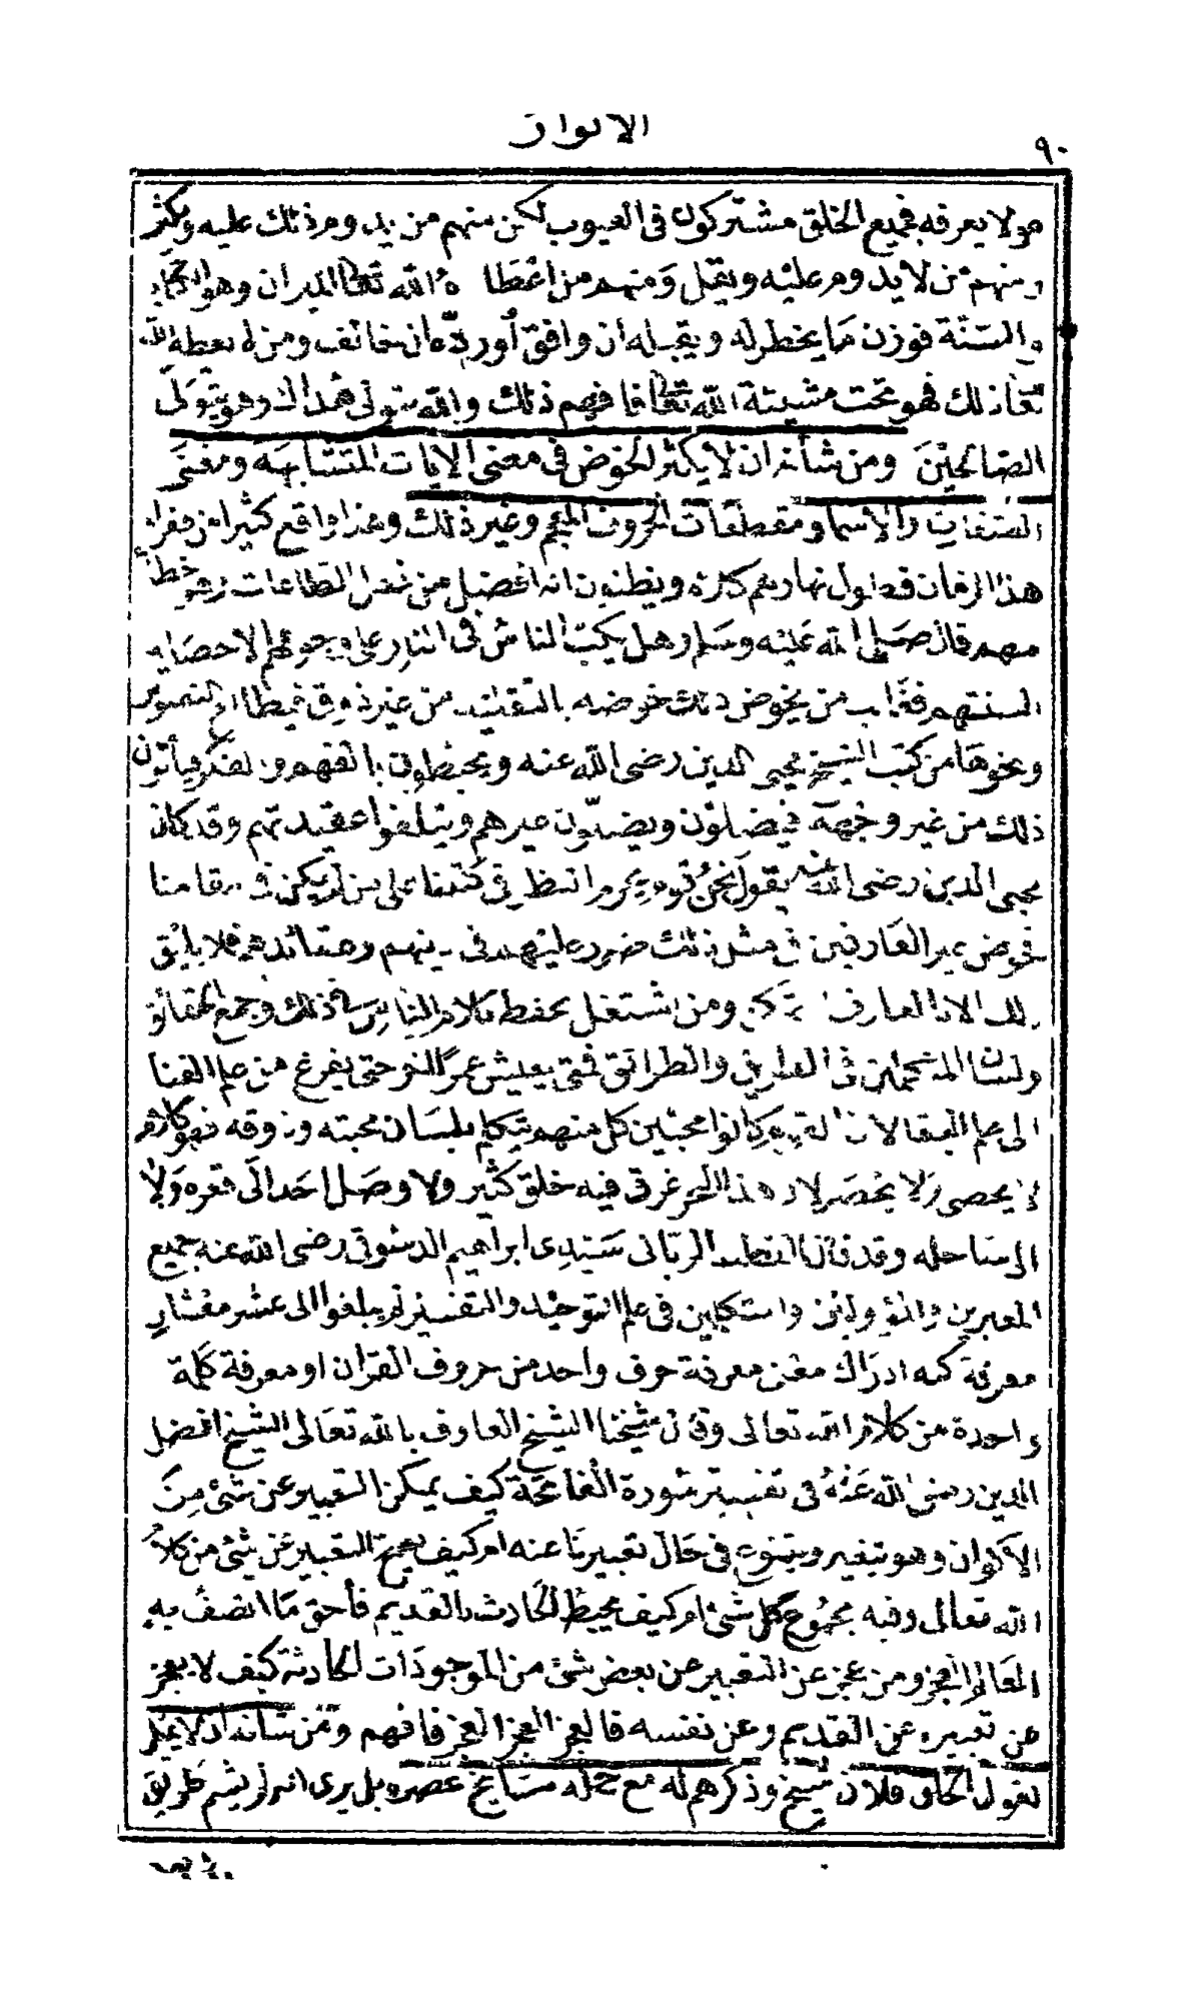 الانوار
٩٠
هو لا يعرفه فجميع الخلق مشتركون في العيوب لكن منهم من يدوم ذلك عليه ويكثر
ومنهم من لا يدوم عليه ويقل ومنهم من اعطاه الله تعالى الميزان وهو
والسنة فوزن ما يخطر له ويقبله ان وافق أو رده ان خالف ومن لم يعطه الله
تعالى ذلك فهو تحت مشيئة الله تعالى فافهم ذلك والله يتولى هداك وهو يتولى
الصالحين ومن شأنه ان لا يكثر الخوض في معنى الايات المتشابهة ومعنى
الصفات والاسما ومقطعات الحروف المعجم وغير ذلك وهذا واقع كثيرا من فقراء
هذا الزمان فطول نهارهم كذا ويظنون انه افضل من فعل الطاعات وهو خطأ
منهم قال صلى الله عليه وسلم وهل يكب الناس في النار على وجوههم الا حصايد
السنتهم فغالب من يخوض ذلك خوضه بالتقليد من غير ذوق
ونحوها من كتب الشيخ محيى الدين رضى الله عنه ويحيطون بالفهم
ذلك من غير وجهه فيضلون ويضلون غيرهم ويتلفوا عقيدتهم وقد كان
محيى الدين رضى الله عنه يقول نحن قوم يحرم النظر في كتبنا على من لم يكن في مقامنا
فخوض غير العارفين في مثل ذلك ضرر عليهم في دينهم وعقائدهم فلا يليق
ذلك الا للعارف ومن اشتغل بحفظ كلام الناس في ذلك وجمع الحقائق
ولسان المتكلمين في الطرائق فمتى يعيش عمرا اخر حتى يفرغ من علم الفنا
الى علم البقا لان القوم كانوا محبين كل منهم يتكلم بلسان محبته وذوقه فهو كلام
لا يحصى ولا يحصر لان هذا البحر غرق فيه خلق كثير ولا وصل احد الى قعره ولا
الى ساحله وقد قال القطب الربانى سيدى ابراهيم الدسوقى رضى الله عنه جميع
المعبرين والمؤولين والمتكلمين في علم التوحيد والتفسير لم يبلغوا الى عشر معشار
معرفة كنه ادراك معنى معرفة حرف واحد من حروف القران او معرفة كلمة
واحدة من كلام الله تعالى وقال شيخنا الشيخ العارف بالله تعالى الشيخ افضل
الدين رضى الله عنه في تفسير سورة الفاتحة كيف يمكن التعبير عن شئ من
الاكوان وهو يتغير ويتنوع في حال تعبيرنا عنه ام كيف يصح التعبير عن شئ من كلام
الله تعالى وفيه مجموع كل شئ ام كيف يحيط الحادث بالقديم فأحق ما اتصف به
العالم العجز ومن عجز عن التعبير عن بعض شئ من الموجودات الحادثة كيف لا يعجز
عن تعبيره عن القديم وعن نفسه فالعجز العجز العجز فافهم ومن شأنه ان لا يغتر
بقول الخلق فلان شيخ وذكرهم له مع جملة مشايخ عصره بل يرى انه لم يشم طريق